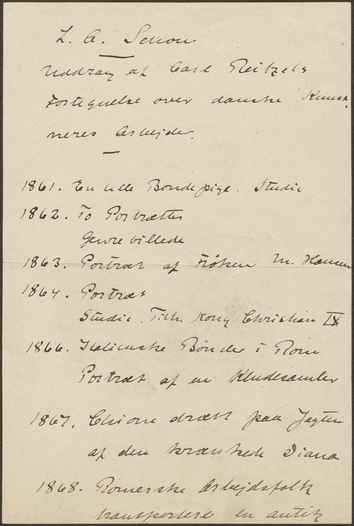 L. A. Schou
Uddrag af Carl Reitzels
Fortegnelse over danske Kunst-
neres Arbejder.
1861. En lille Bondepige. Studie
1862. To Portrætter
Genrebillede
1863. Portræt af Frøken M. Hammer
1864. Portræt
Studie. Tilh. Kong Christian IX
1866. Italienske Bønder i Rom
Portræt af en Kludesamler
1867. Chione dræbt paa Jagten
af den krænkede Diana
1868. Romerske Arbejdsfolk
transportere en antik